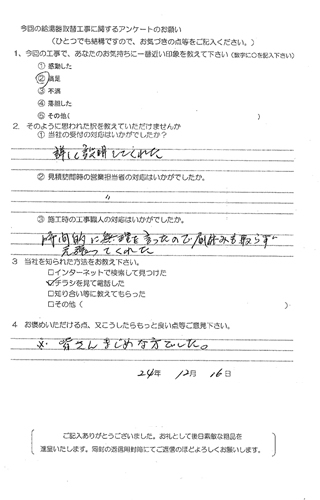 今回の給湯器取替工事に関するアンケートのお願い
(ひとつでも結構ですので、お気づきの点等をご記入ください。)
1、今回の工事で、あなたのお気持ちに一番近い印象を教えて下さい(数字に〇を記入下さい)
① 感動した
② 満足
③ 不満
④ 落胆した
⑤ その他( )
2. そのように思われた訳を教えていただけませんか
① 当社の受付の対応はいかがでしたか?
詳しく説明してくれた
② 見積訪問時の営業担当者の対応はいかがでしたか。
〃
③ 施工時の工事職人の対応はいかがでしたか。
時間的に無理を言ったので昼休みも取らず
頑張ってくれた
3 当社を知られた方法をお教え下さい。
□インターネットで検索して見つけた
☑チラシを見て電話した
□知り合い等に教えてもらった
□その他( )
4 お褒めいただける点、又こうしたらもっと良い点等ご意見下さい。
※ 皆さんまじめな方でした。
24年 12月 16日
ご記入ありがとうございました。お礼として後日素敵な粗品を
進呈いたします。同封の返信用封筒にてご返信のほどよろしくお願いします。